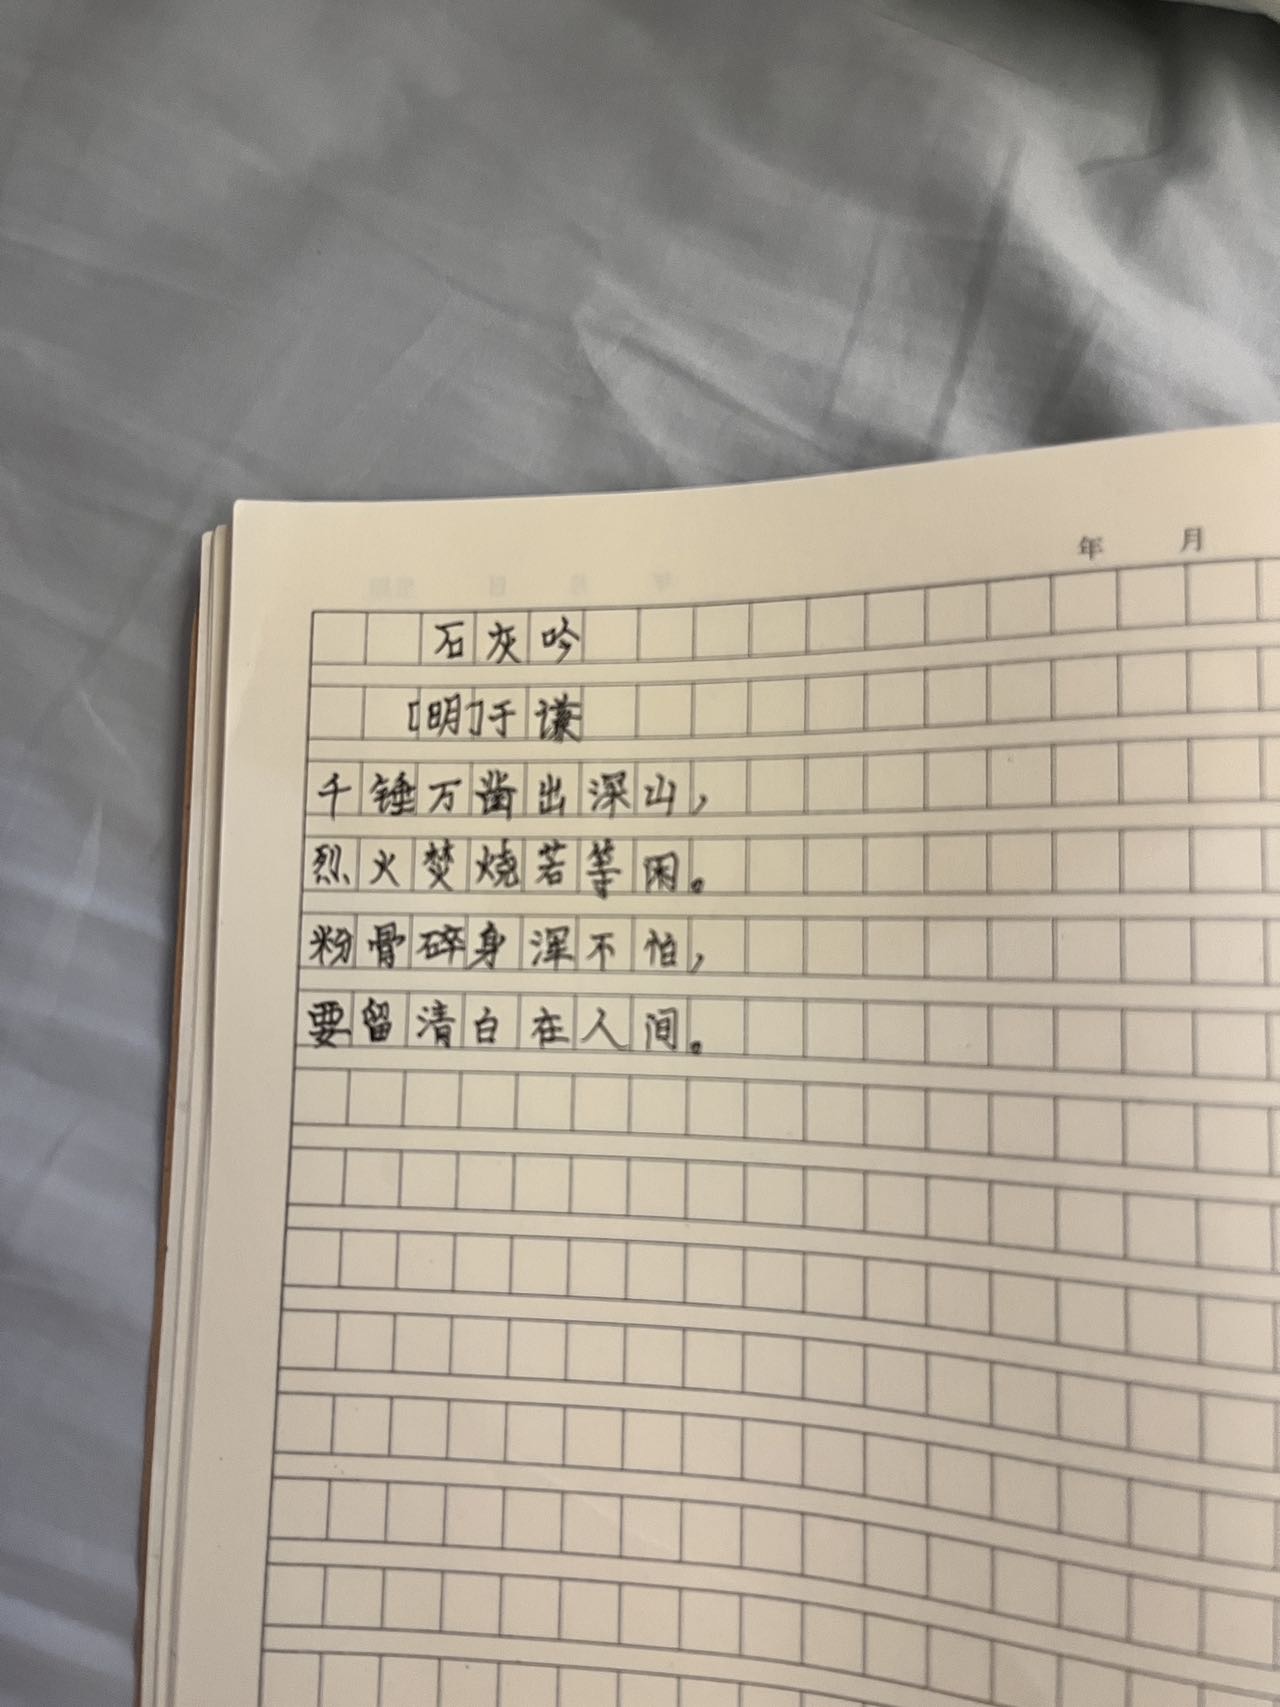 年 月
石灰吟
[明]于谦
千锤万凿出深山，
烈火焚烧若等闲。
粉骨碎身浑不怕，
要留清白在人间。